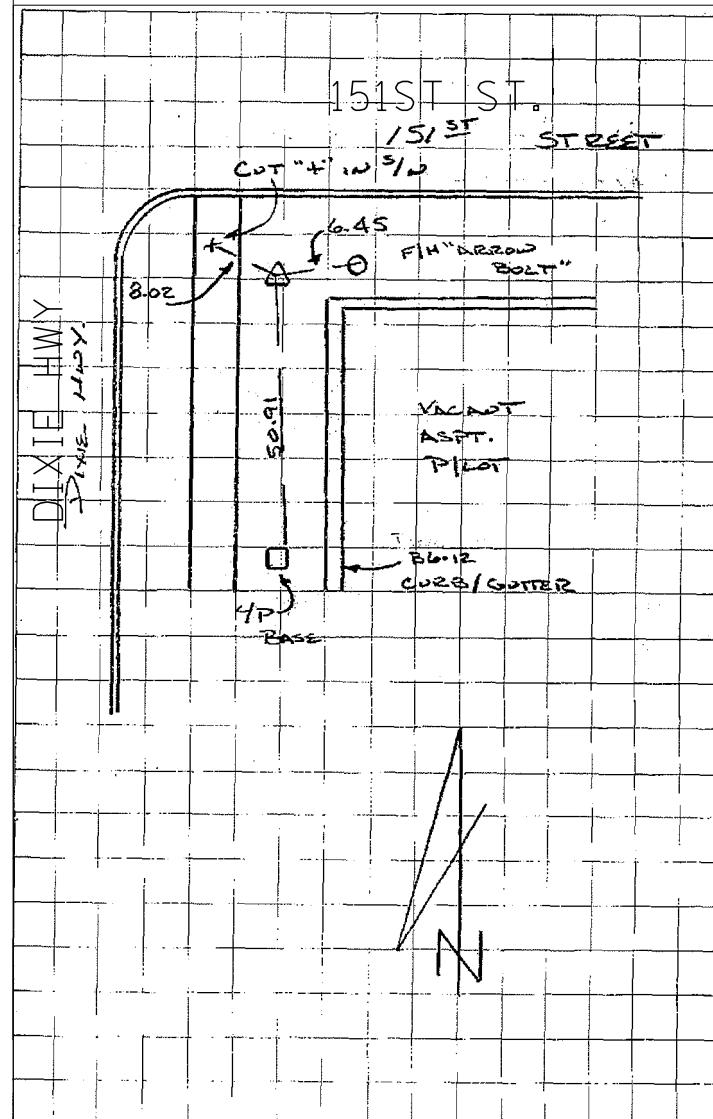 151ST ST.
151 ST STREET
CUT "+" IN S/W
6.45
F/H "ARROW
BOLT"
8.02
DIXIE HWY
DIXIE HWY.
50.91
VACANT
ASPT.
P/LOT
B6.12
CURB/GUTTER
BASE
N